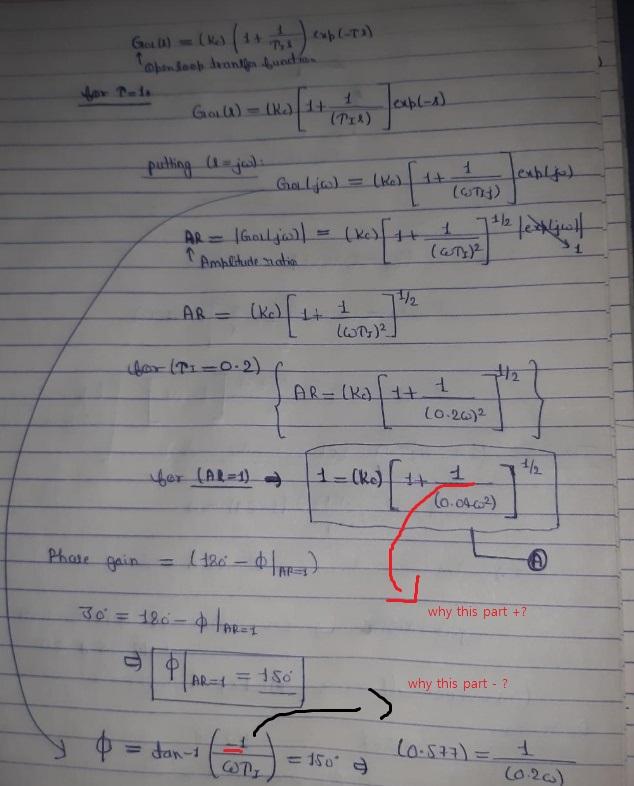 G_OL(s) = (Kc) (1 + 1/(τ_I s)) exp(-τs)
↑ Open loop transfer function
for τ=1,
G_OL(s) = (Kc) [1 + 1/(τ_I s)] exp(-s)
putting (s=jω):
G_OL(jω) = (Kc) [1 + 1/(ωτ_I j)] exp(jω)
AR = |G_OL(jω)| = (Kc) [1 + 1/(ωτ_I)²]^1/2 |exp(jω)| → 1
↑ Amplitude ratio
AR = (Kc) [1 + 1/(ωτ_I)²]^1/2
for (τ_I = 0.2) { AR = (Kc) [1 + 1/(0.2ω)²]^1/2 }
for (AR=1) ⇒ 1 = (Kc) [1 + 1/(0.04ω²)]^1/2
A
Phase gain = (180° - ϕ|AR=1)
why this part +?
30° = 180° - ϕ|AR=1
⇒ ϕ|AR=1 = 150°
why this part - ?
ϕ = tan-1 (-1/(ωτ_I)) = 150° ⇒ (0.577) = 1/(0.2ω)